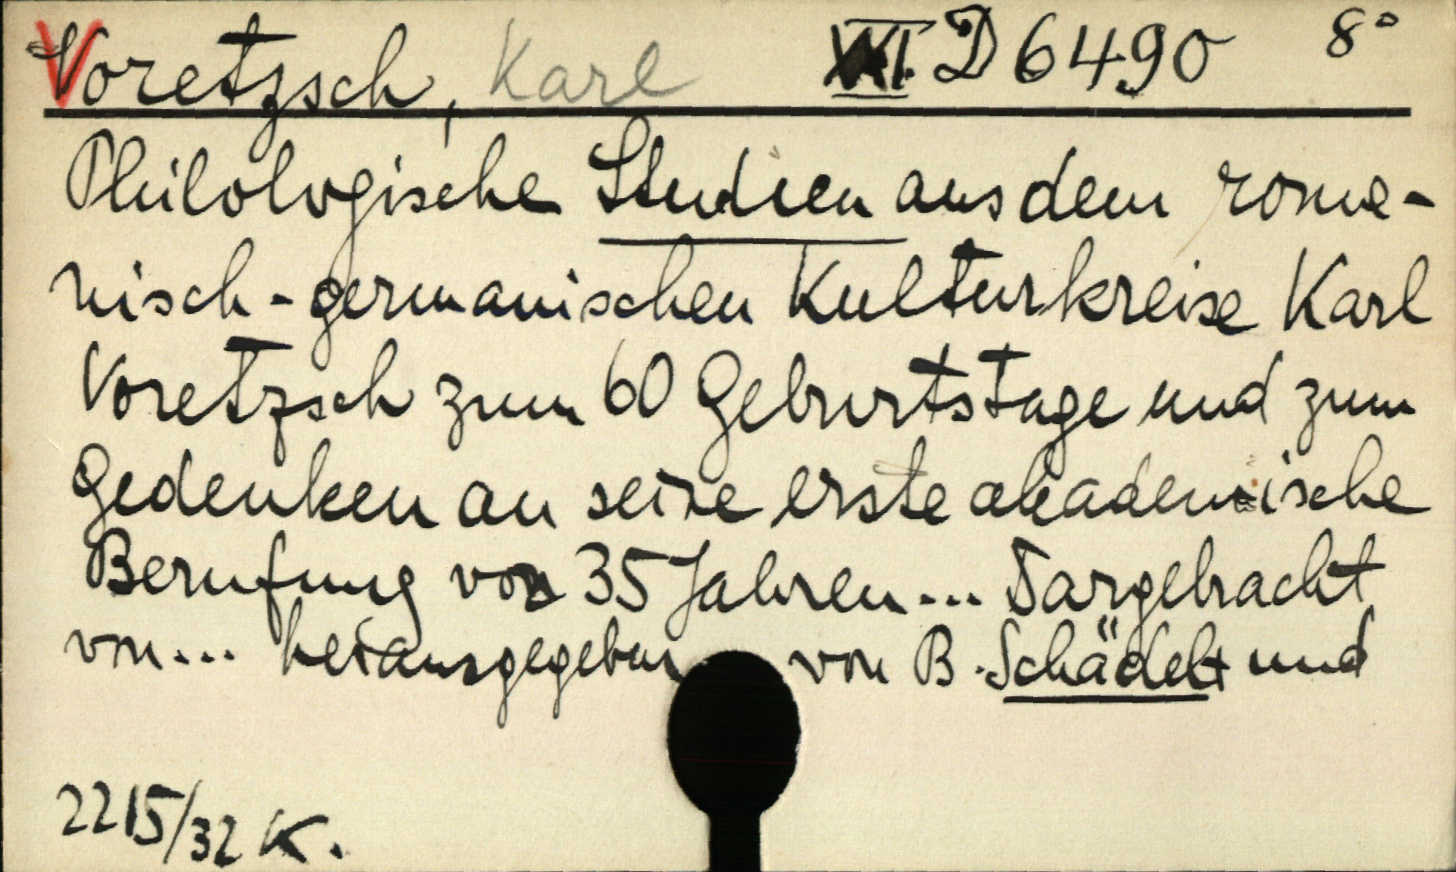 Voretzsch, Karl XVI. D 6490 8°
Philologische Studien aus dem roma-
nisch-germanischen Kulturkreise Karl
Voretzsch zum 60 Geburtstage und zum
Gedenken an seine erste akademische
Berufung vor 35 Jahren... Dargebracht
von... herausgegeben von B. Schädel† und
2215/32 K.